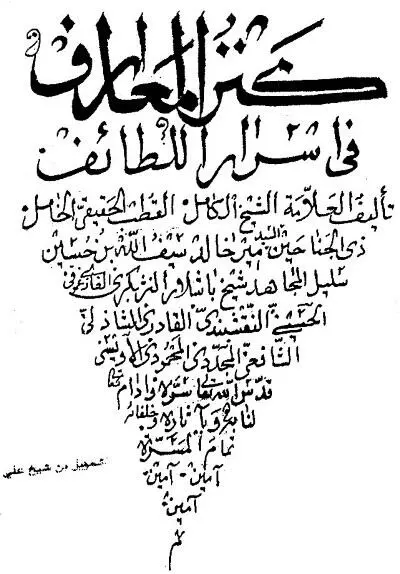 كنز المعارف
فى اسرار اللطائف
تأليف العلامة الشيخ الكامل القطب الحقيقى الحامل
ذى الجناحين السيد مير خالد سيف الله بن حسين
سليل المجاهد شيخ باشلار النزبكرى
الحسينى النقشبندى القادرى الشاذلى
الشافعى المجددى المحمودى الاويسى
قدس الله تعالى سره وادام
لنا وبآثاره وخلفائه
تمام المسرة
آمين - آمين
آمين
تم
شيخ على